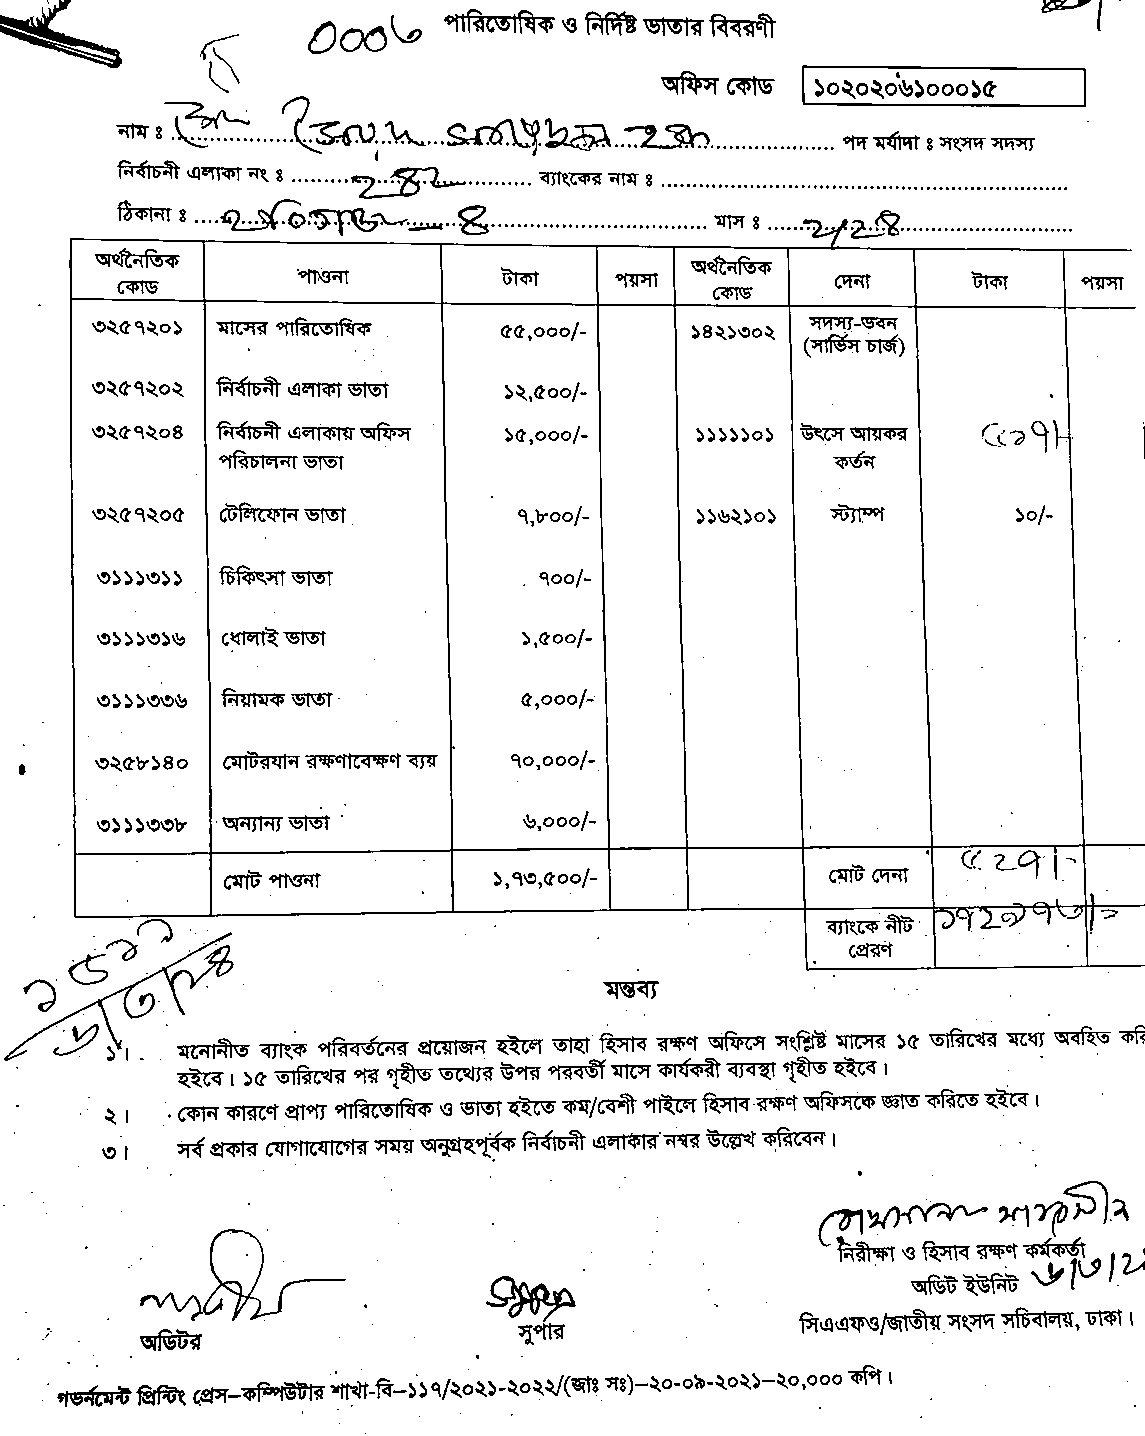 ০০০৬
পারিতোষিক ও নির্দিষ্ট ভাতার বিবরণী
অফিস কোড ১০২০২০৬১০০০১৫
নাম ঃ পদ মর্যাদা ঃ সংসদ সদস্য
নির্বাচনী এলাকা নং ঃ ২৪২ ব্যাংকের নাম ঃ
ঠিকানা ঃ মাস ঃ ২/২৪
অর্থনৈতিক কোড পাওনা টাকা পয়সা অর্থনৈতিক কোড দেনা টাকা পয়সা
৩২৫৭২০১ মাসের পারিতোষিক ৫৫,০০০/- ১৪২১৩০২ সদস্য-ভবন
(সার্ভিস চার্জ)
৩২৫৭২০২ নির্বাচনী এলাকা ভাতা ১২,৫০০/-
৩২৫৭২০৪ নির্বাচনী এলাকায় অফিস ১৫,০০০/- ১১১১১০১ উৎসে আয়কর ৫১৭/-
পরিচালনা ভাতা কর্তন
৩২৫৭২০৫ টেলিফোন ভাতা ৭,৮০০/- ১১৬২১০১ স্ট্যাম্প ১০/-
৩১১১৩১১ চিকিৎসা ভাতা ৭০০/-
৩১১১৩১৬ ধোলাই ভাতা ১,৫০০/-
৩১১১৩৩৬ নিয়ামক ভাতা ৫,০০০/-
৩২৫৮১৪০ মোটরযান রক্ষণাবেক্ষণ ব্যয় ৭০,০০০/-
৩১১১৩৩৮ অন্যান্য ভাতা ৬,০০০/-
মোট পাওনা ১,৭৩,৫০০/- মোট দেনা ৫২৭/-
ব্যাংকে নীট প্রেরণ ১৭২৯৭৩/=
৬/৩/২৪
মন্তব্য
১। মনোনীত ব্যাংক পরিবর্তনের প্রয়োজন হইলে তাহা হিসাব রক্ষণ অফিসে সংশ্লিষ্ট মাসের ১৫ তারিখের মধ্যে অবহিত করি
হইবে। ১৫ তারিখের পর গৃহীত তথ্যের উপর পরবর্তী মাসে কার্যকরী ব্যবস্থা গৃহীত হইবে।
২। কোন কারণে প্রাপ্য পারিতোষিক ও ভাতা হইতে কম/বেশী পাইলে হিসাব রক্ষণ অফিসকে জ্ঞাত করিতে হইবে।
৩। সর্ব প্রকার যোগাযোগের সময় অনুগ্রহপূর্বক নির্বাচনী এলাকার নম্বর উল্লেখ করিবেন।
নিরীক্ষা ও হিসাব রক্ষণ কর্মকর্তা
অডিট ইউনিট ৬/৩/২
অডিটর সুপার সিএএফও/জাতীয় সংসদ সচিবালয়, ঢাকা।
গভর্নমেন্ট প্রিন্টিং প্রেস–কম্পিউটার শাখা-বি–১১৭/২০২১-২০২২/(জাঃ সঃ)–২০-০৯-২০২১–২০,০০০ কপি।